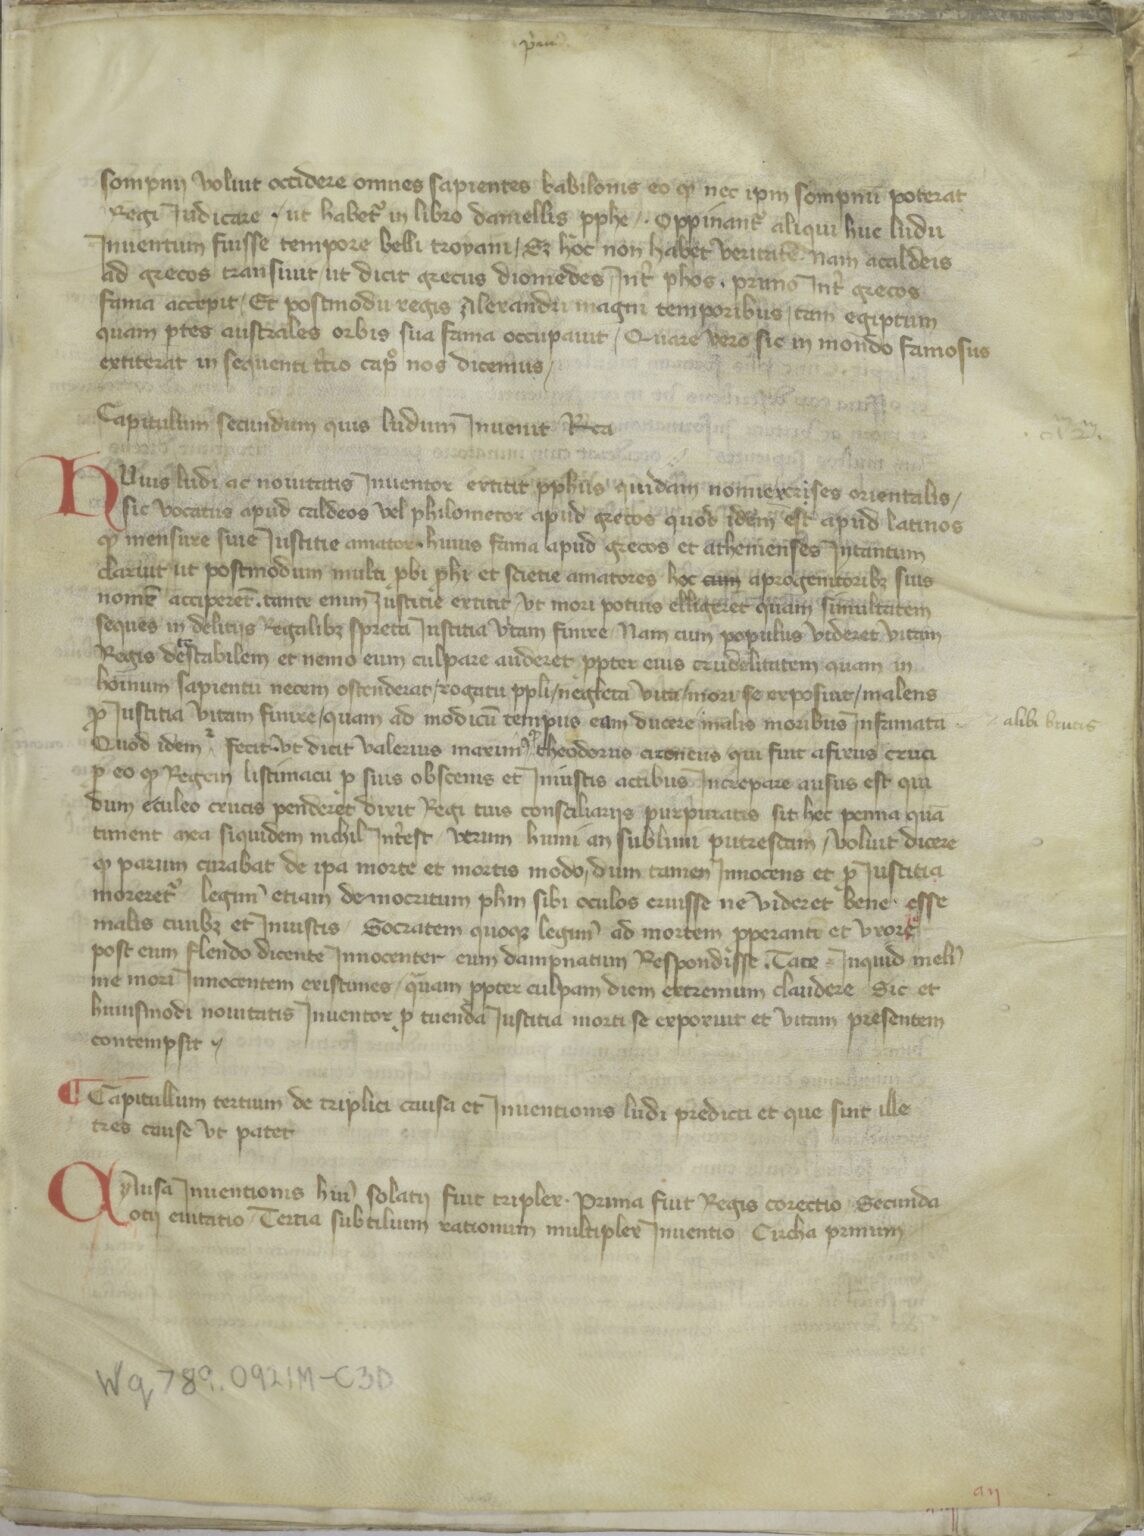 sompnij voluit occidere omnes sapientes babilonis eo qꝫ nec ipm̄ sompnū poterat
Regi Iudicare · ut habet᷑ in libro daniellis pphe / · Oppinant᷑ aliqui huc ludū
Inventum fuisse tempore belli troyani / Sꝫ hoc non habet veritatē Nam acaldeis
ad grecos transiuit ut dicit grecus diomedes Int᷑ phos · primo Int᷑ grecos
fama accepit / Et postmodū regis Alexandri magni temporibus / tam egiptum
quam ptes australes orbis sua fama occupauit / Quare vero sic in mondo famosus
extiterat in sequenti tercio cap° nos dicemus /
Capitulum secundum quis ludum Inuenit
HUius ludi ac nouitatis Inuentor extitit pphūs quidam nomīe xerses orientalis /
sic vocatus apud caldeos vel philometor apud grecos quod idem est apud latinos
qꝫ mensure siue Iusticie amator · huius fama apud grecos et athenienses Intantum
claruit ut postmodum multi pbi phi et scietie amatores hoc cum aprogenitoribꝫ suis
nomē acciperēt · tante enim Iustitie extitit vt mori potius elligeret quam simultatem
seques in delitijs Regalibꝫ spreta Iustitia vitam finire · Nam cum populus videret vitam
Regis detestabilem et nemo eum culpare auderet ppter eius crudelitatem quam in
hoinum sapientū necem ostenderat / rogatu ppli / neglecta vita / mori se exposuit / malens
p Iustitia vitam finire / quam ad modicū tempus eam ducere malis moribus Infamatā
alibi brutis
Quod idem fecit · vt dicit valerius maximꝰ theodorus cireneus qui fuit afixus cruci
p eo qꝫ Regem lisimacū p suis obscenis et Iniustis actibus Increpare ausus est qui
dum eculeo crucis penderet dixit Regi tuis consciliarijs purpuratis sit hec penna quā
timent mea siquidem nichil Int᷑est verum humi an sublimi putrescam / voluit dicere
qꝫ parum curabat de ipa morte et mortis modo / dum tamen Innocens et p Iustitia
moreret᷑ legimꝰ etiam democritum phm̄ sibi oculos eruisse ne videret bene · esse
malis ciuibꝫ et Iniustis · Socratem quoqꝫ legimꝰ ad mortem pperantē et vxore
post eum flendo dicente Innocenter eum dampnatum Respondisse · Tace Inquid meliꝰ
me mori Innocentem existimes / quam ppter culpam diem extremum claudere Sic et
huiusmodi nouitatis Inuentor p tuenda Iustitia morti se exposuit et vitam presentem
contempsit
¶ Capitullum tertium de triplici causa et Inuentionis ludi predicti et que sint ille
tres cause vt patet
CAusa Inuentionis huiꝰ solatij fuit triplex · Prima fuit Regis corectio Secunda
otij euitatio · Tertia subtilium rationum multiplex Inuentio Circha primum
Wq 789.0921M-C3D
aij